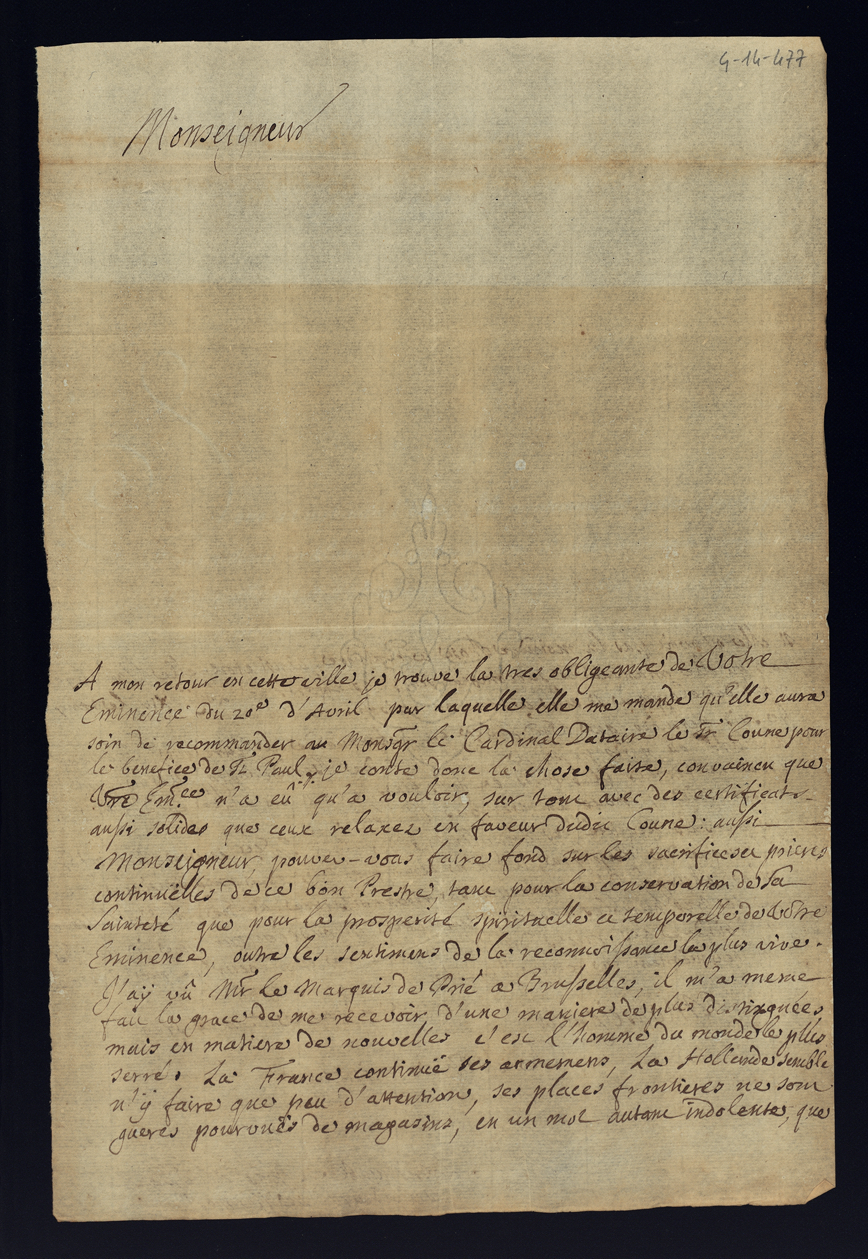 4-14-477
Monseigneur
A mon retour en cette ville je trouve la tres obligeante de Votre
Eminence du 20e d'Avril par laquelle elle me mande qu'elle aura
soin de recommander au Monsgr le Cardinal Dataire le Sr Coune pour
le benefice de St. Paul, je conte donc la chose faite, convaincu que
Vre Emce n'a eû qu'a vouloir, sur tout avec des certificats
aussi solides que ceux relaxez en faveur dudit Coune: aussi
Monseigneur, pouvez-vous faire fond sur les sacrifices et prieres
continuëlles de ce bon Prestre, tant pour la conservation de Sa
Sainteté que pour la prosperité spirituelle et temporelle de Votre
Eminence, outre les sentimens de la reconnoissance la plus vive.
J'ay vû Mr le Marquis de Prié a Brusselles, il m'a meme
fait la grace de me recevoir d'une maniere de plus distinguées,
mais en matiere de nouvelles c'est l'homme du monde le plus
serré. La France continuë ses armemens, La Hollande semble
n'ÿ faire que peu d'attention, ses places frontieres ne sont
gueres pourvuës de magasins, en un mot autant indolente, que